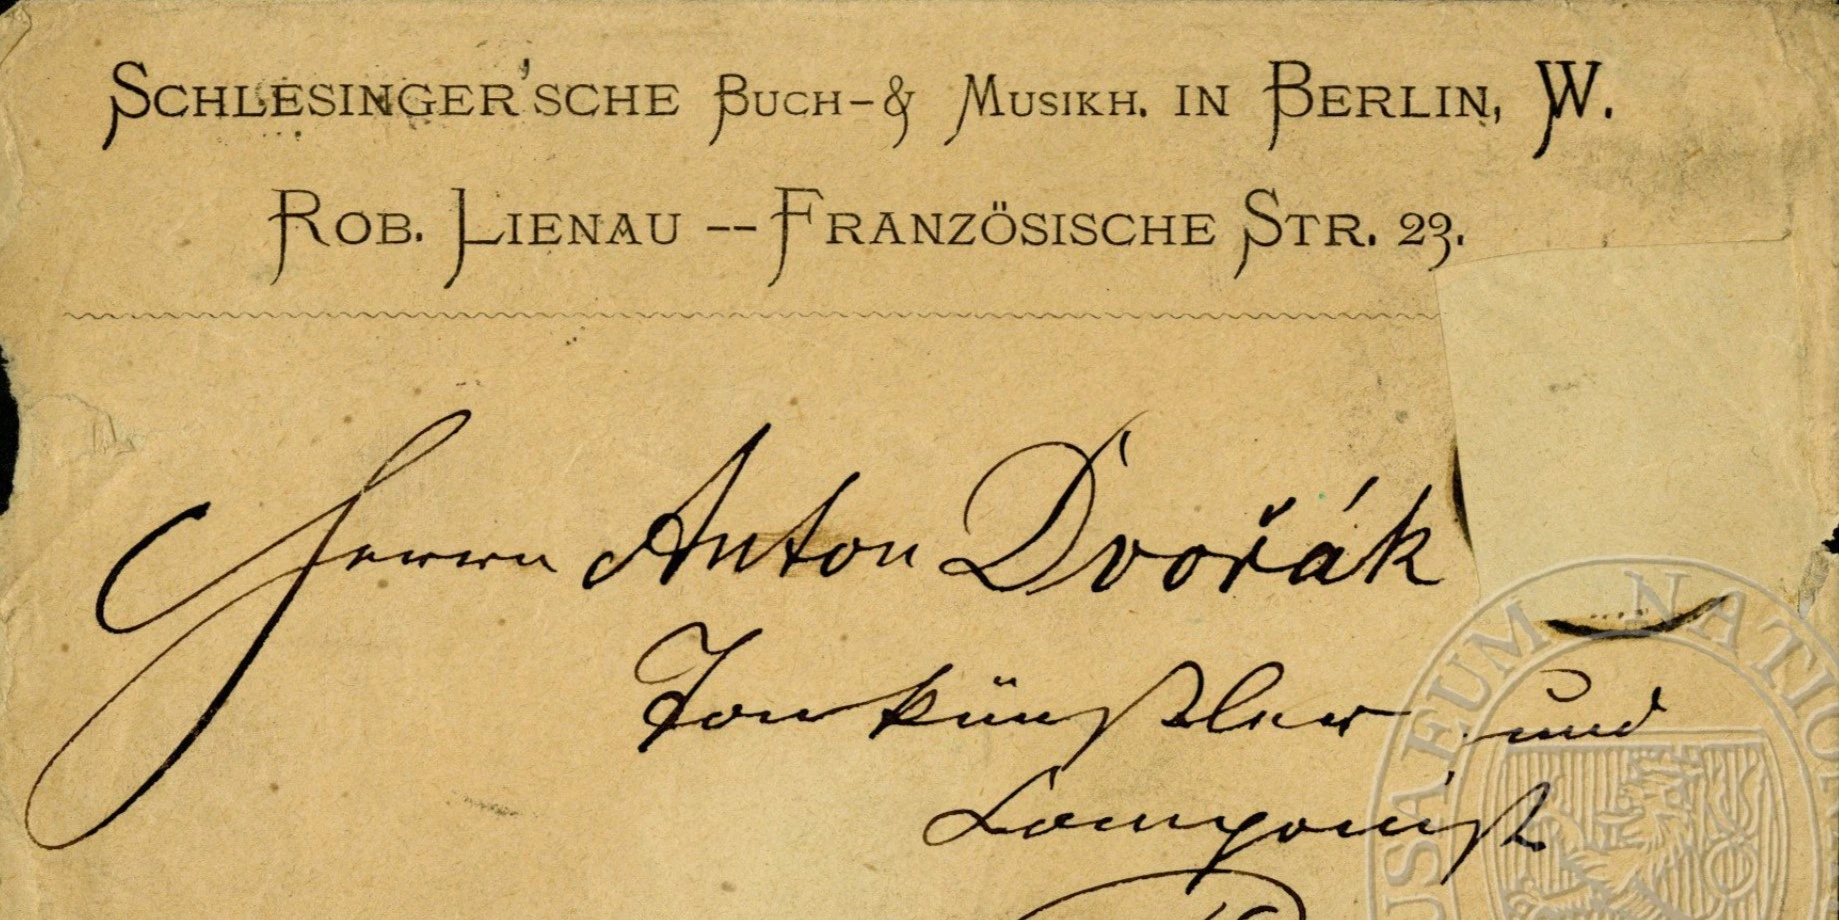 SCHLESINGER'SCHE BUCH-& MUSIKH. IN BERLIN, W.
ROB. LIENAU -- FRANZÖSISCHE STR. 23.
Herrn Anton Dvořák
Tonkünstler und
Componist
MUSAEUM NATION